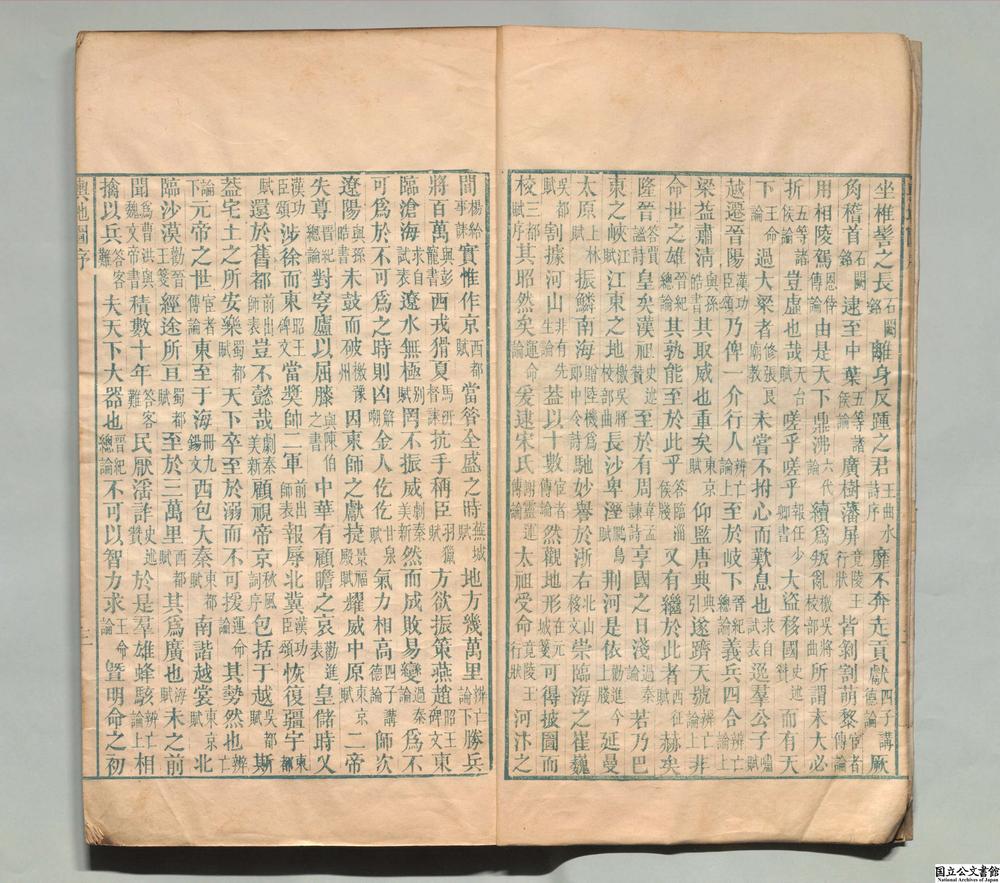 坐椎髻之長石闕銘離身反踵之君王曲水詩序靡不奔走貢獻四子講德論厥
角稽首石闕銘逮至中葉五等諸侯論廣樹藩屏竟陵王行狀皆剝割萌黎宦者傳論
用相陵駕恩倖傳論由是天下鼎沸六代論續爲叛亂檄吳將校部曲所謂末大必
折五等諸侯論豈虛也哉天台賦嗟乎嗟乎報任少卿書大盜移國史述贊而有天
下王命論過大梁者修張良廟教未嘗不拊心而歎息也求自試表逸羣公子嘯賦
越遷晉陽漢功臣頌乃俾一介行人辨亡論上至於岐下晉紀總論義兵四合辨亡論上
梁益肅淸與孫皓書其取威也重矣東京賦仰監唐典典引遂躋天號辨亡論上非
命世之雄晉紀總論其孰能至於此乎答臨淄侯牋又有繼於此者西征賦赫矣
隆晉答賈謐詩皇矣漢祖史述贊至於有周韋孟諷諫詩享國之日淺過秦論若乃巴
東之峽江賦江東之地檄吳將校部曲長沙卑溼鵩鳥賦荆河是依勸進今上牋延曼
太原上林賦振鱗南海贈陸機爲郎中令詩馳妙譽於浙右北山移文崇臨海之崔巍
吳都賦割據河山非有先生論蓋以十數宦者傳論然觀地形在元城牋可得披圖而
校三都賦序其昭然矣運命論爰逮宋氏謝靈運傳論太祖受命竟陵王行狀河汴之
間楊給事誄實惟作京西都賦當昝全盛之時蕪城賦地方幾萬里辨亡論下勝兵
將百萬與彭寵書西戎猾夏馬汧督誄抗手稱臣羽獵賦方欲振策燕趙昭王碑文東
臨滄海求自試表遼水無極別賦罔不振威劇秦美新然而成敗易變過秦論爲不
可爲於不可爲之時則凶解嘲金人仡仡甘泉賦氣力相高四子講德論師次
遼陽與孫皓書未鼓而破檄豫州因東師之獻捷景福殿賦耀威中原東京賦二帝
失尊晉紀總論對穹廬以屈膝與陳伯之書中華有顧瞻之哀勸進表皇儲時乂
漢功臣頌涉徐而東昭王碑文當奬帥二軍前出師表報辱北冀漢功臣頌恢復疆宇東都
賦還於舊都前出師表豈不懿哉劇秦美新顧視帝京秋風詞序包括于越吳都賦斯
蓋宅土之所安樂蜀都賦天下卒至於溺而不可援運命論其勢然也辨亡
論下元帝之世宦者傳論東至于海冊九錫文西包大秦東都賦南諧越裳東京賦北
臨沙漠勸晉王牋經途所亘蜀都賦至於三萬里西都賦其爲廣也海賦未之前
聞爲曹洪與魏文帝書積數十年答客難民厭淫詐史述贊於是羣雄蜂駭辨亡論上相
擒以兵答客難夫天下大器也晉紀總論不可以智力求王命論曁明命之初
輿地圖序
三
国立公文書館
National Archives of Japan